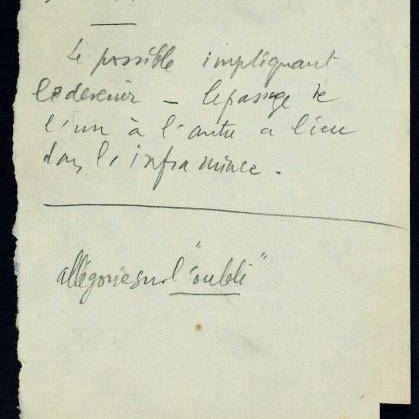 Le possible impliquant
le devenir — le passage de
l'un à l'autre a lieu
dans l'infra mince.
allégorie sur l'"oubli"